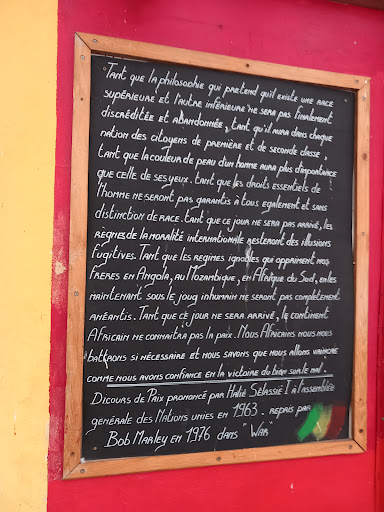 Tant que la philosophie qui pretend qu'il existe une race
supérieure et l'autre inférieure ne sera pas finalement
discréditée et abandonnée, tant qu'il aura dans chaque
nation des citoyens de première et de seconde classe,
tant que la couleur de peau d'un homme aura plus d'importance
que celle de ses yeux. tant que les droits essentiels de
l'homme ne seront pas garantis à tous egalement et sans
distinction de race. tant que ce jour ne sera pas arrivé, les
règnes de la moralité internationale resteront des illusions
fugitives. Tant que les regimes ignobles qui oppriment nos
freres en Angola, au Mozambique, en Afrique du Sud, en les
maintenant sous le joug inhumain ne seront pas completement
anéantis. Tant que ce jour ne sera arrivé, le continent
Africain ne connaitra pas la paix. Nous Africains nous nous
battrons si nécessaire et nous savons que nous allons vaincre
comme nous avons confiance en la victoire du bien sur le mal.
Dicours de Paix prononcé par Hailé Sélassié I à l'assemblée
générale des Nations unies en 1963. repris par
Bob Marley en 1976 dans "War"